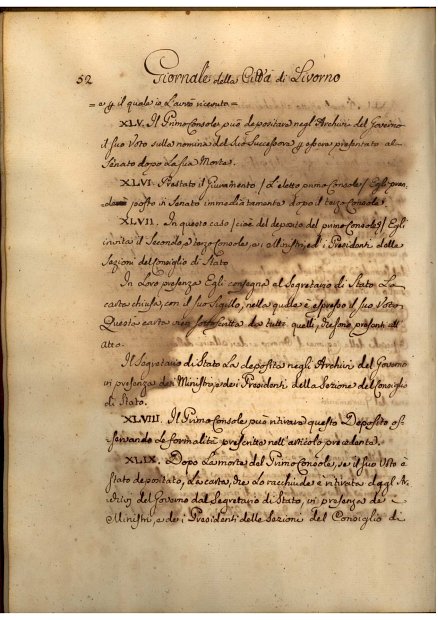 52 Giornale della Città di Livorno
= e p il quale io l'avrò ricevuta =
XLV. Il Primo Console può depositare negl'Archivi del Governo
il suo Voto sulla nomina del suo Successore p essere presentato al
Senato dopo la sua Morte.
XLVI. Prestato il Giuramento / L'eletto primo Console / Egli pren-
posto in Senato immediatamente dopo il terzo Console.
XLVII. In questo caso / cioè del deposito del primo Console / Egli
invita il Secondo, e terzo Console, e i Ministri, ed i Presidenti delle
Sezioni del Consiglio di Stato
In Loro presenza Egli consegna al Segretario di Stato La
carta chiusa, con il suo Sigillo, nella quale è espresso il suo Voto.
Questa carta vien sottoscritta da tutti quelli, che sono presenti all'
atto.
Il Segretario di Stato La deposita negli Archivi del Governo
in presenza de i Ministri, e de i Presidenti della Sezione del Consiglio
di Stato.
XLVIII. Il Primo Console può ritirare questo Deposito os-
servando le formalità prescritte nell'articolo precedente.
XLIX. Dopo La morte del Primo Console, se il suo Voto è
Stato depositato, La carta, che Lo racchiude è ritirata dagl'Ar-
chivj del Governo dal Segretario di Stato, in presenza de i
Ministri, e de i Presidenti delle Sezioni del Consiglio di